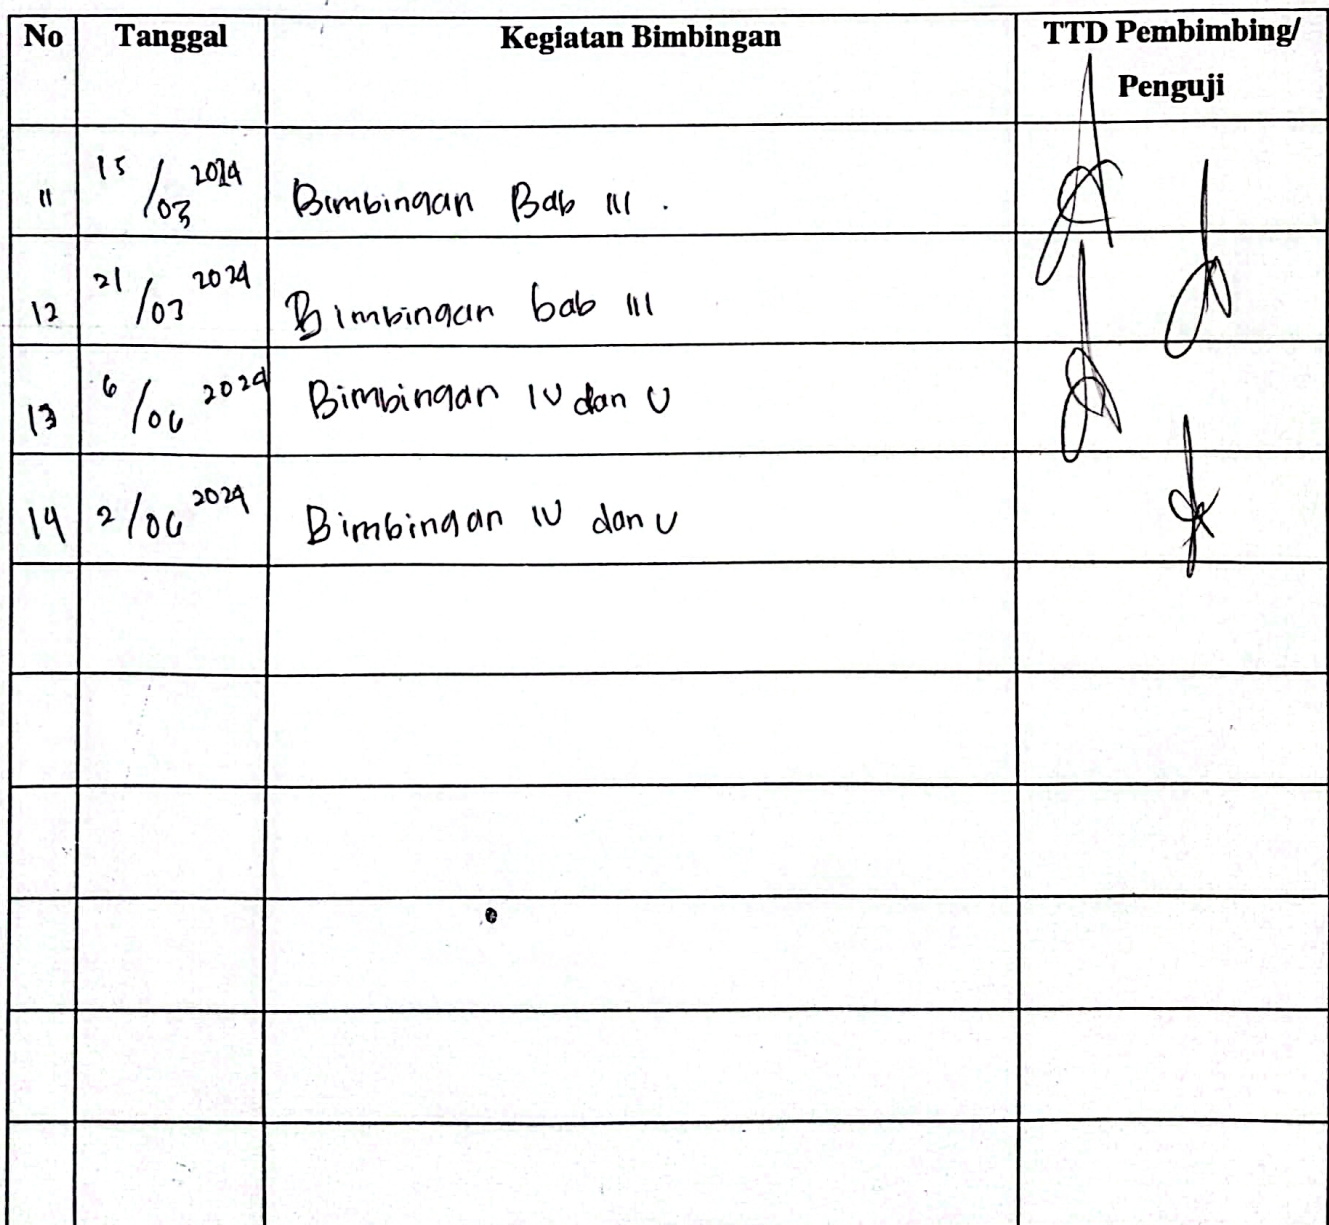 No Tanggal Kegiatan Bimbingan TTD Pembimbing/
Penguji
11 15/03 2024 Bimbingan Bab III .
12 21/03 2024 Bimbingan bab III
13 6/06 2024 Bimbingan IV dan V
14 2/06 2024 Bimbingan IV dan V